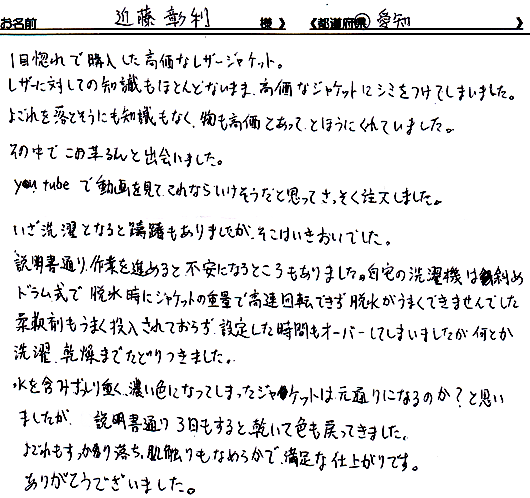 お名前 近藤彰利 様》 《都道府県 愛知 》
1目惚れで購入した高価なレザージャケット。
レザーに対しての知識もほとんどないまま、高価なジャケットにシミをつけてしまいました。
よごれを落とそうにも知識もなく、物も高価とあって、とほうにくれていました。
その中でこの革るんと出会いました。
you tube で動画を見て、これならいけそうだと思ってさっそく注文しました。
いざ洗濯となると躊躇もありましたが、そこはいきおいでした。
説明書通り、作業を進めると不安になるところもありました。自宅の洗濯機は斜め
ドラム式で脱水時にジャケットの重量で高速回転できず脱水がうまくできませんでした
柔軟剤もうまく投入されておらず、設定した時間もオーバーしてしまいましたが何とか
洗濯、乾燥までたどりつきました。
水を含みずっしり重く、濃い色になってしまったジャケットは元通りになるのか?と思い
ましたが、説明書通り3日もすると、乾いて色も戻ってきました。
よごれもすっかり落ち、肌触りもなめらかで、満足な仕上がりです。
ありがとうございました。